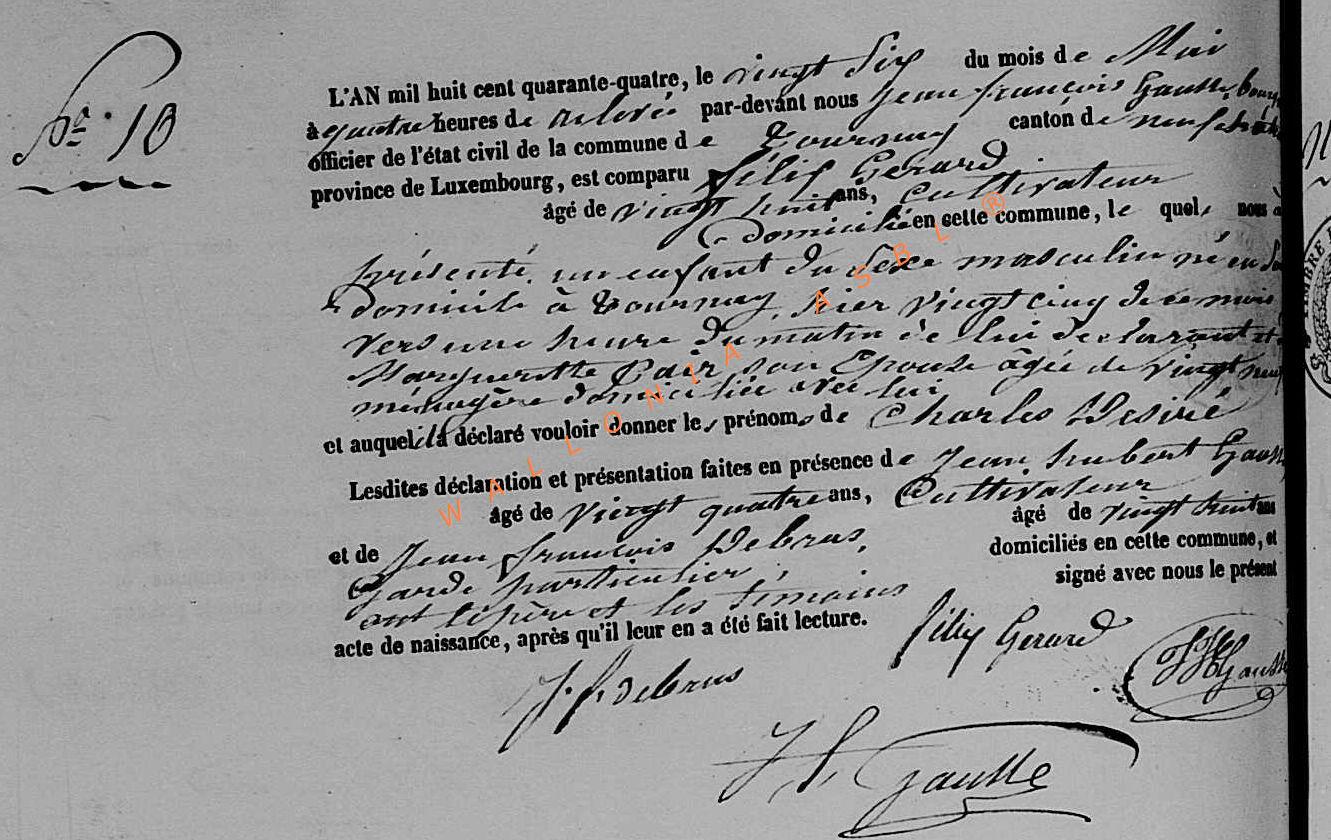 N° 10
L'AN mil huit cent quarante-quatre, le vingt six du mois de Mai
à quatre heures de relevée par-devant nous Jean françois Gausse, bourg
officier de l'état civil de la commune de Tournay canton de neufchâte
province de Luxembourg, est comparu félix Gerard
âgé de vingt huit ans, Cultivateur
domicilié en cette commune, lequel nous a
présenté un enfant du sexe masculin né en son
domicile à Tournay, hier vingt cinq de ce mois
vers une heure du matin de lui déclarant et
Margueritte son Epouse âgée de vingt neuf
ménagère domiciliée avec lui
et auquel il a déclaré vouloir donner les prénoms de Charles Desiré
Lesdites déclaration et présentation faites en présence de Jean hubert Gausse
âgé de vingt quatre ans, Cultivateur
et de Jean françois Debras, âgé de vingt huit ans
Garde particulier, domiciliés en cette commune, et
ont le père et les témoins signé avec nous le présent
acte de naissance, après qu'il leur en a été fait lecture.
félix Gerard
J. f. debras
JH Gausse
J f Gausse
WALLONIA ASBL ®